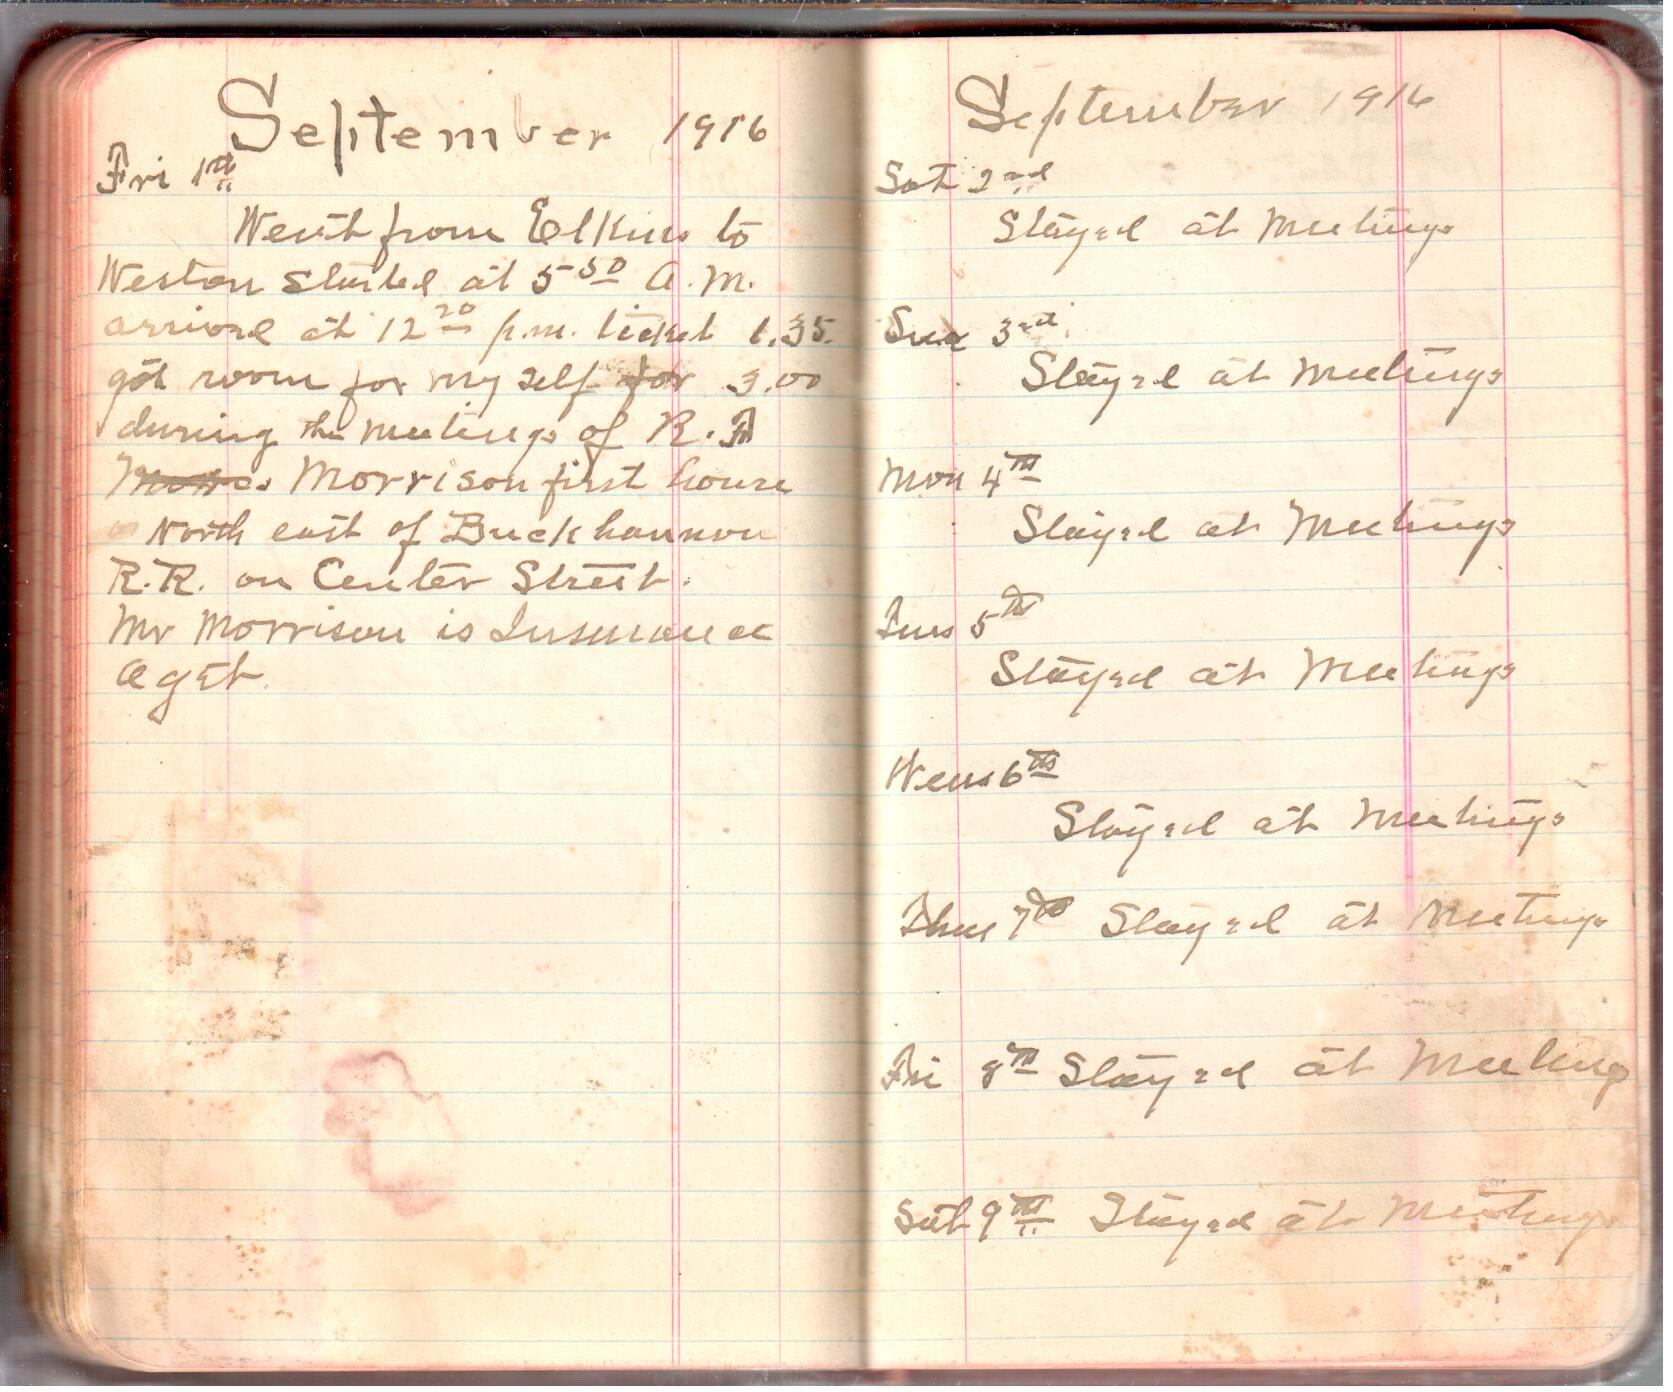 September 1916
Fri 1st
Went from Elkins to
Weston started at 5 50 a.m.
arrived at 12 20 p.m. ticket 1.35
got room for my self for 3.00
during the meetings of R.
Morrison first house
North east of Buckhannon
R.R. on Center Street.
Mr Morrison is Insurance
aget.
September 1916
Sat 2nd
Stayed at Meetings
Sun 3rd
Stayed at Meetings
Mon 4th
Stayed at Meetings
Tues 5th
Stayed at Meetings
Wens 6th
Stayed at Meetings
Thur 7th Stayed at Meetings
Fri 8th Stayed at Meeting
Sat 9th Stayed at Meetings